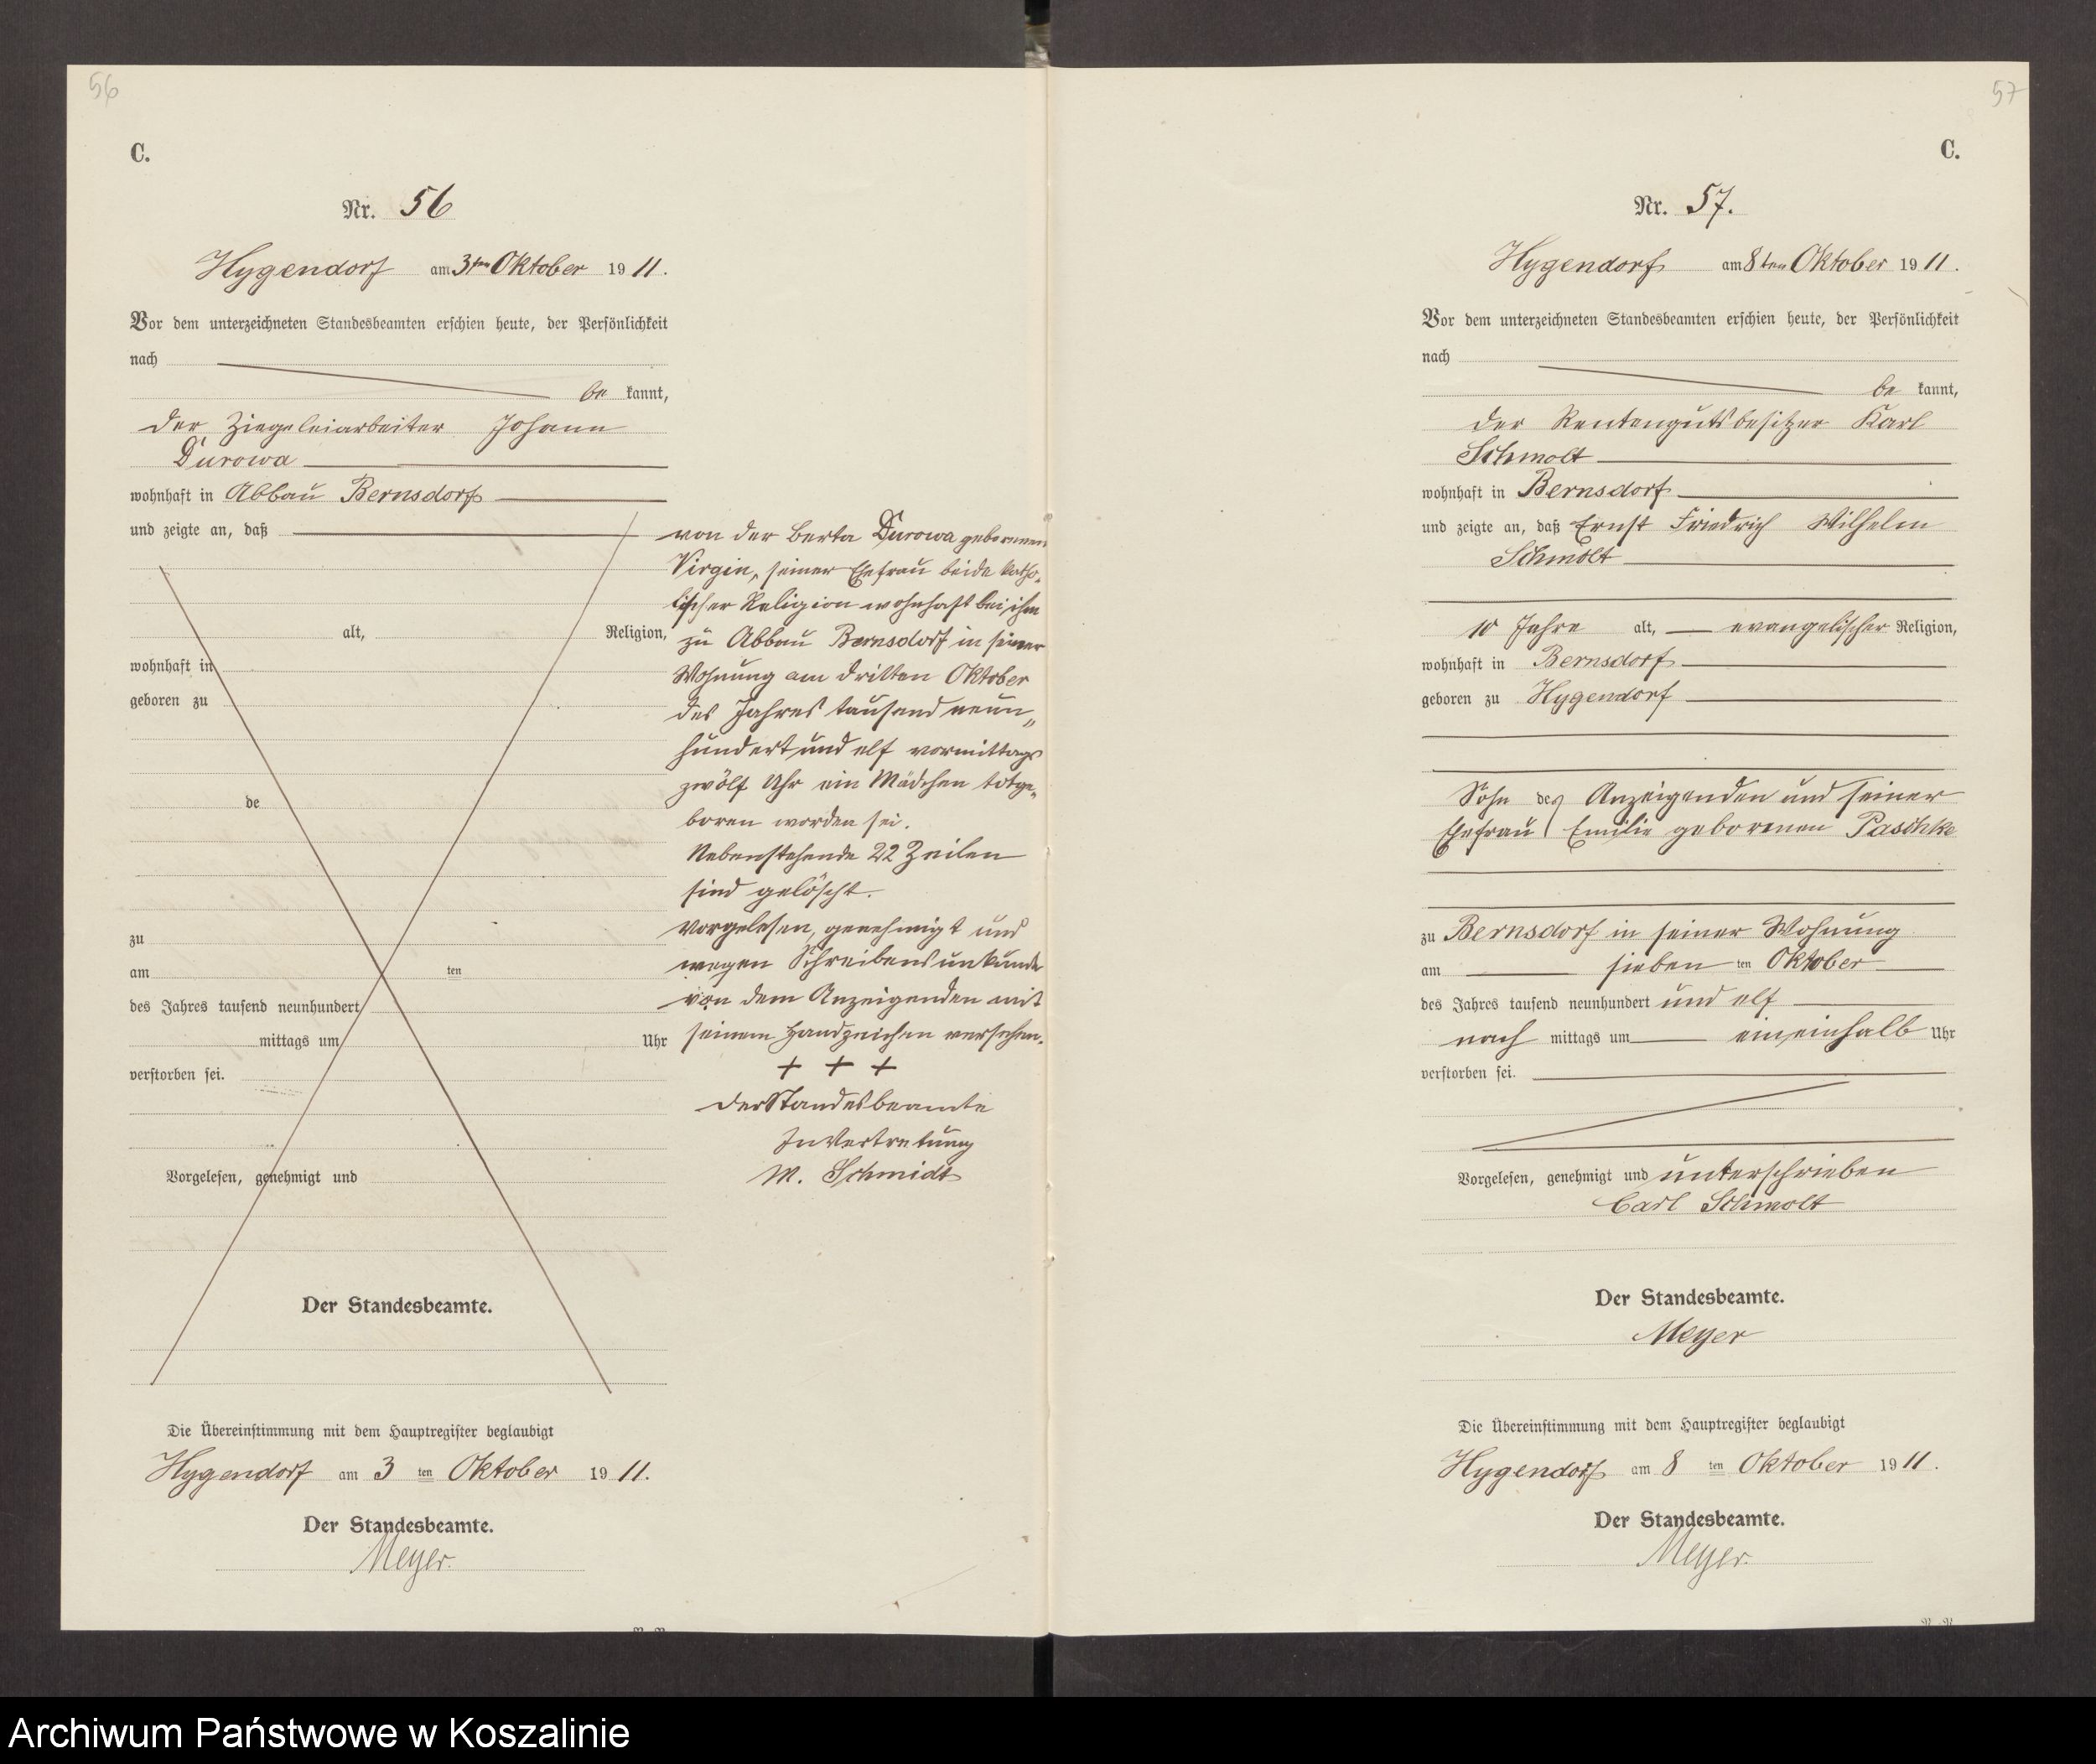 56
C.
Nr. 56
Hygendorf am 3ten Oktober 1911.
Vor dem unterzeichneten Standesbeamten erschien heute, der Persönlichkeit
nach
be kannt,
der Ziegeleiarbeiter Johann
Durowa
wohnhaft in Abbau Bernsdorf
und zeigte an, daß
alt, Religion,
wohnhaft in
geboren zu
de
zu
am ten
des Jahres tausend neunhundert
mittags um Uhr
verstorben sei.
Vorgelesen, genehmigt und
Der Standesbeamte.
von der Berta Durowa geborenen
Virgin, seiner Ehefrau beide katho-
lischer Religion wohnhaft bei ihm
zu Abbau Bernsdorf in seiner
Wohnung am dritten Oktober
des Jahres tausend neun„
hundert und elf vormittags
zwölf Uhr ein Mädchen totge„
boren worden sei.
Nebenstehende 22 Zeilen
sind gelöscht.
Vorgelesen, genehmigt und
wegen Schreibensunkunde
von dem Anzeigenden mit
seinem Handzeichen versehen.
+ + +
Der Standesbeamte
In Vertretung
M. Schmidt
Die Übereinstimmung mit dem Hauptregister beglaubigt
Hygendorf am 3 ten Oktober 1911.
Der Standesbeamte.
Meyer.
57
C.
Nr. 57.
Hygendorf am 8ten Oktober 1911.
Vor dem unterzeichneten Standesbeamten erschien heute, der Persönlichkeit
nach
be kannt,
der Rentengutsbesitzer Karl
Schmolt
wohnhaft in Bernsdorf
und zeigte an, daß Ernst Friedrich Wilhelm
Schmolt
10 Jahre alt, evangelischer Religion,
wohnhaft in Bernsdorf
geboren zu Hygendorf
Sohn des Anzeigenden und seiner
Ehefrau Emilie geborenen Paschke
zu Bernsdorf in seiner Wohnung
am sieben ten Oktober
des Jahres tausend neunhundert und elf
nach mittags um eineinhalb Uhr
verstorben sei.
Vorgelesen, genehmigt und unterschrieben
Carl Schmolt
Der Standesbeamte.
Meyer
Die Übereinstimmung mit dem Hauptregister beglaubigt
Hygendorf am 8 ten Oktober 1911.
Der Standesbeamte.
Meyer.
Archiwum Państwowe w Koszalinie